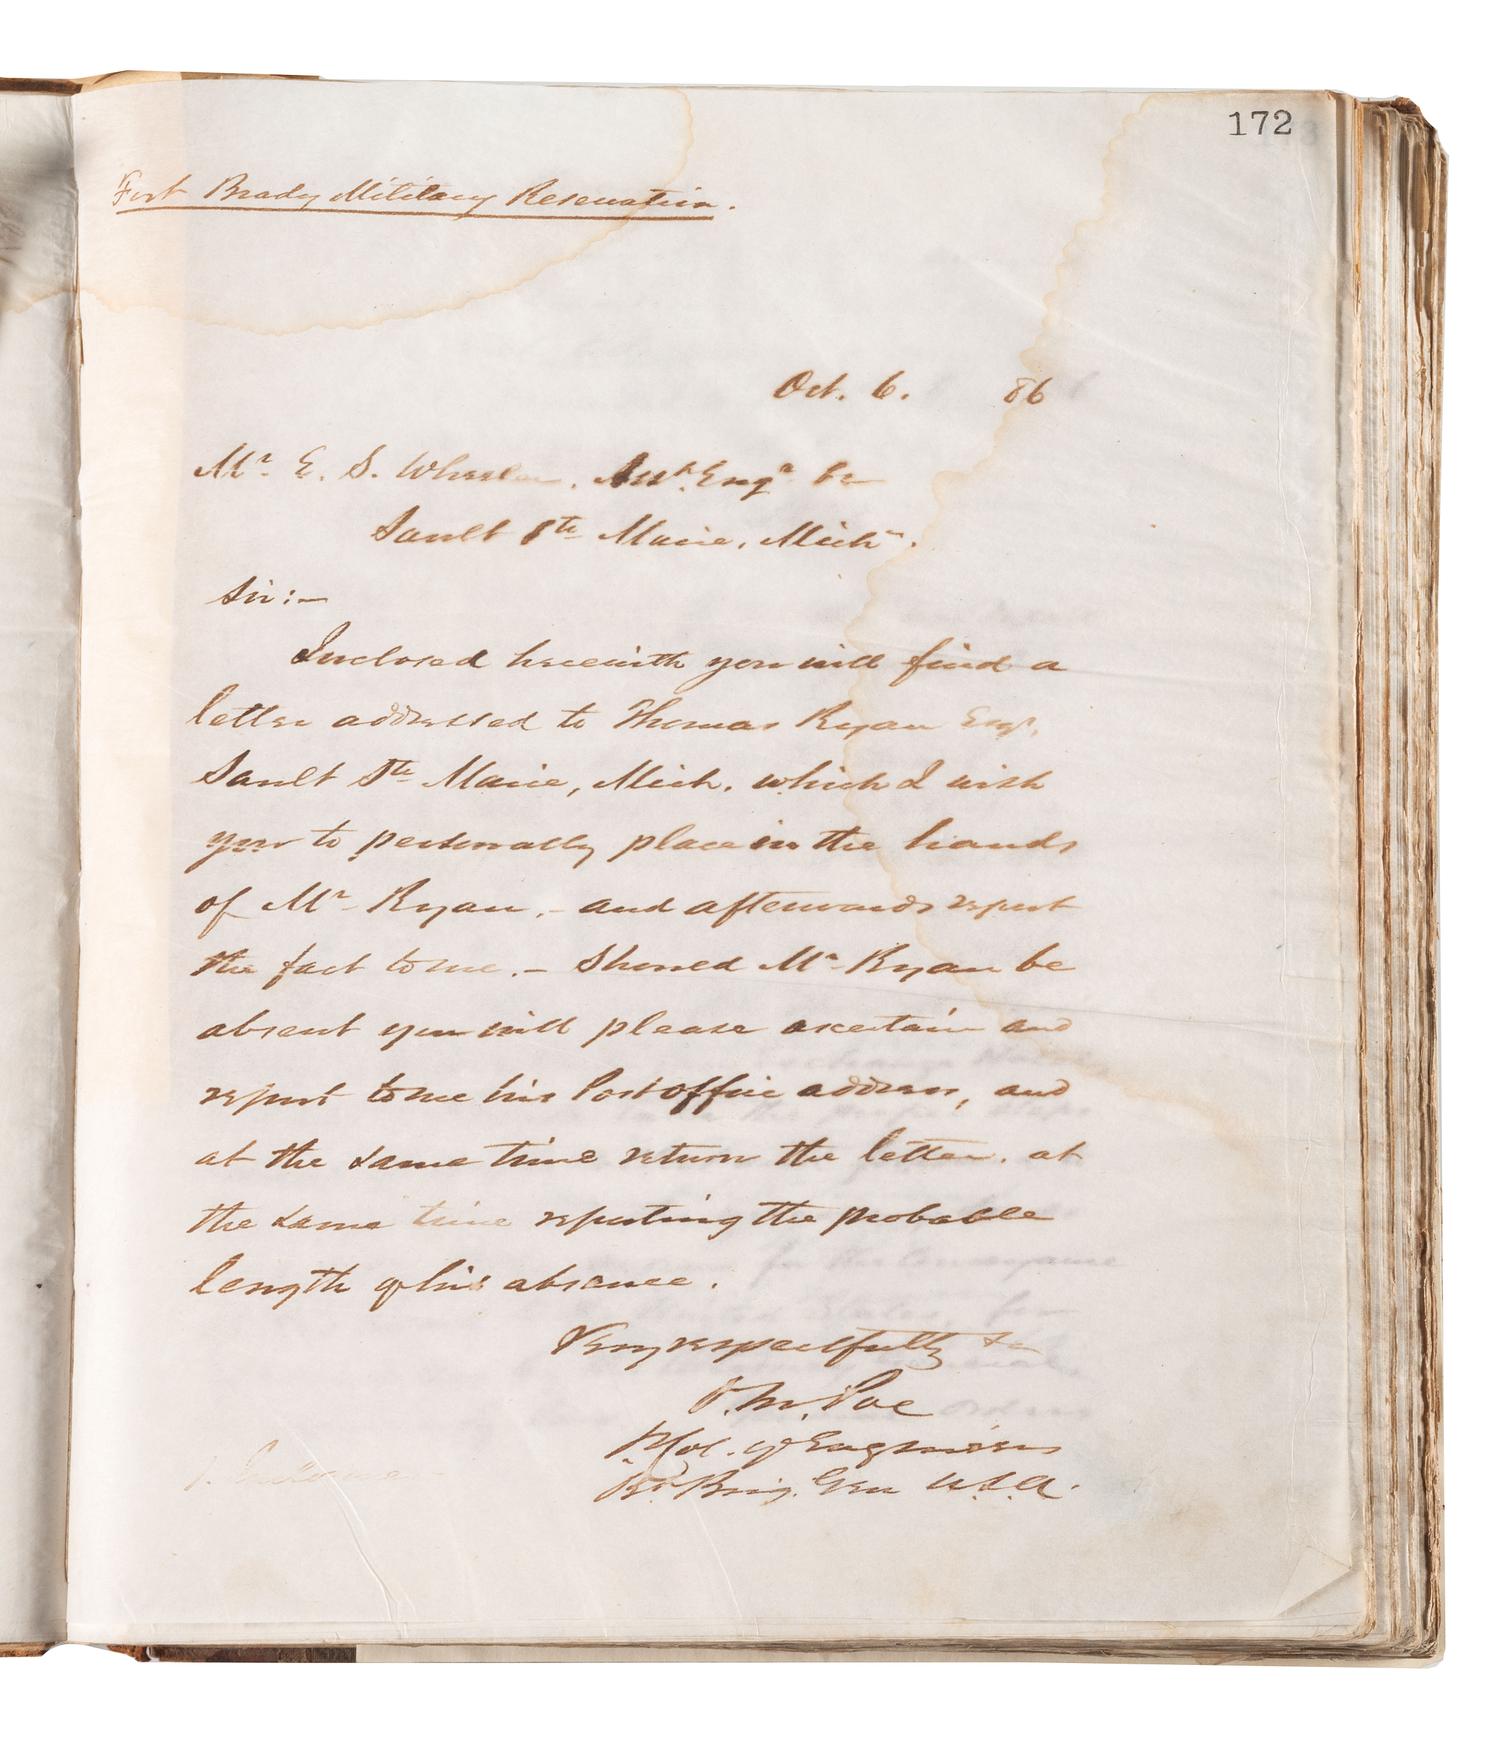 172
Fort Brady Military Reservation.
Oct. 6. 86
Mr. E. S. Wheeler, Asst. Engr. &c
Sault Ste Marie, Mich.
Sir:—
Inclosed herewith you will find a
letter addressed to Thomas Ryan Esq.
Sault Ste Marie, Mich. which I wish
you to personally place in the hands
of Mr. Ryan, - and afterwards report
the fact to me. - Should Mr. Ryan be
absent you will please ascertain and
report to me his Post office address, and
at the same time return the letter. at
the same time reporting the probable
length of his absence.
Very respectfully &c
O. M. Poe
Lt. Col. of Engineers
Bt. Brig. Gen U.S.A.
1. Enclosure